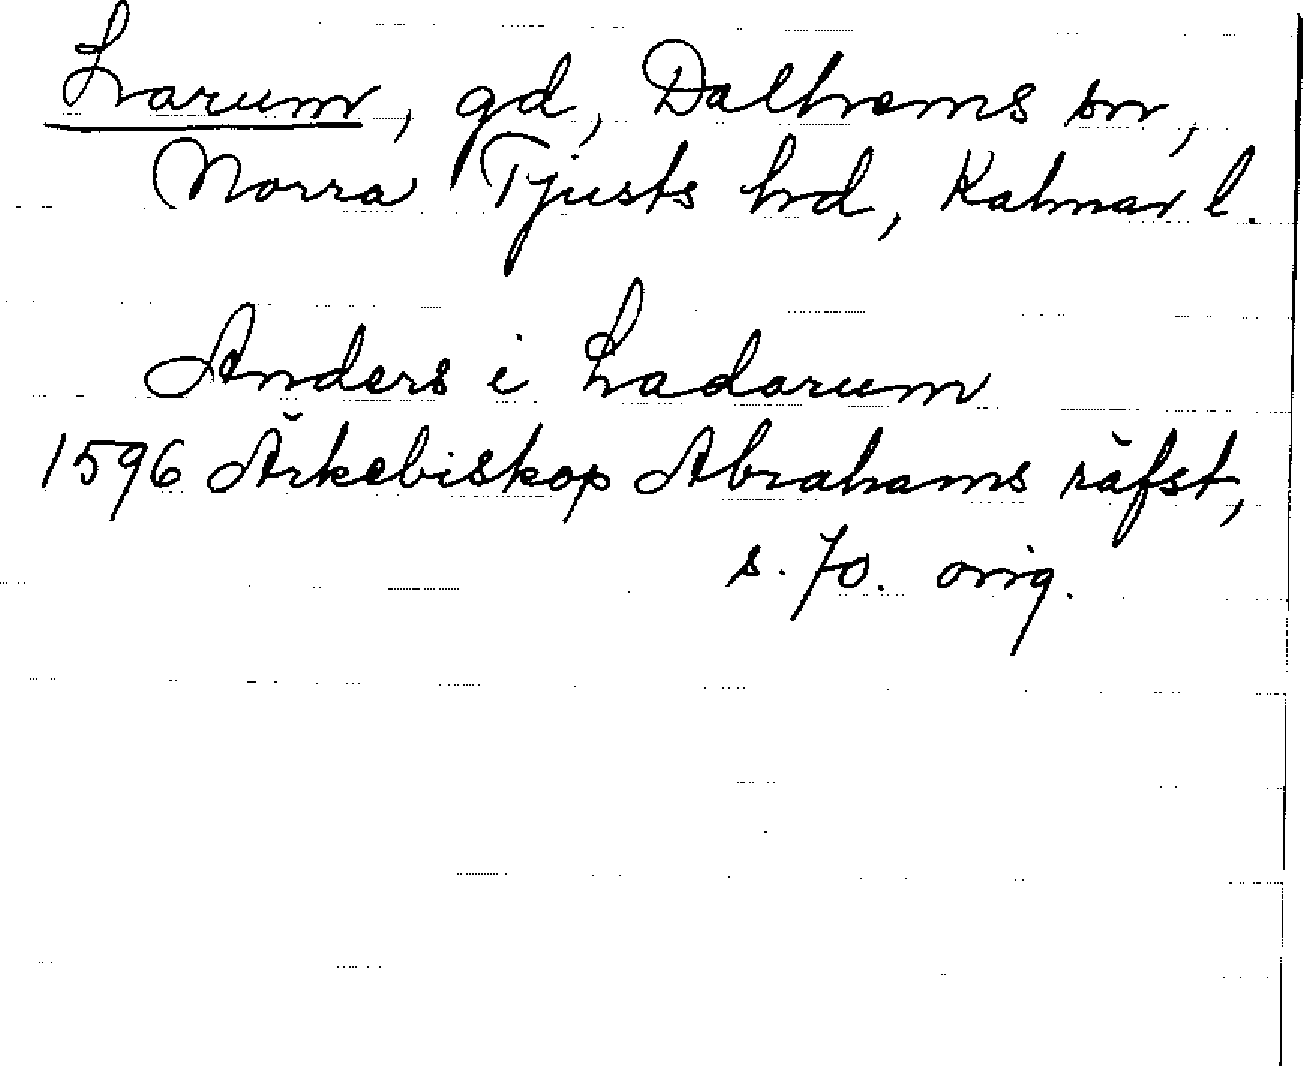 Larum, gd, Dalhems sn,
Norra Tjusts hd, Kalmar l.
Anders i Ladarum
1596 Ärkebiskop Abrahams räfst,
s. 70. orig.